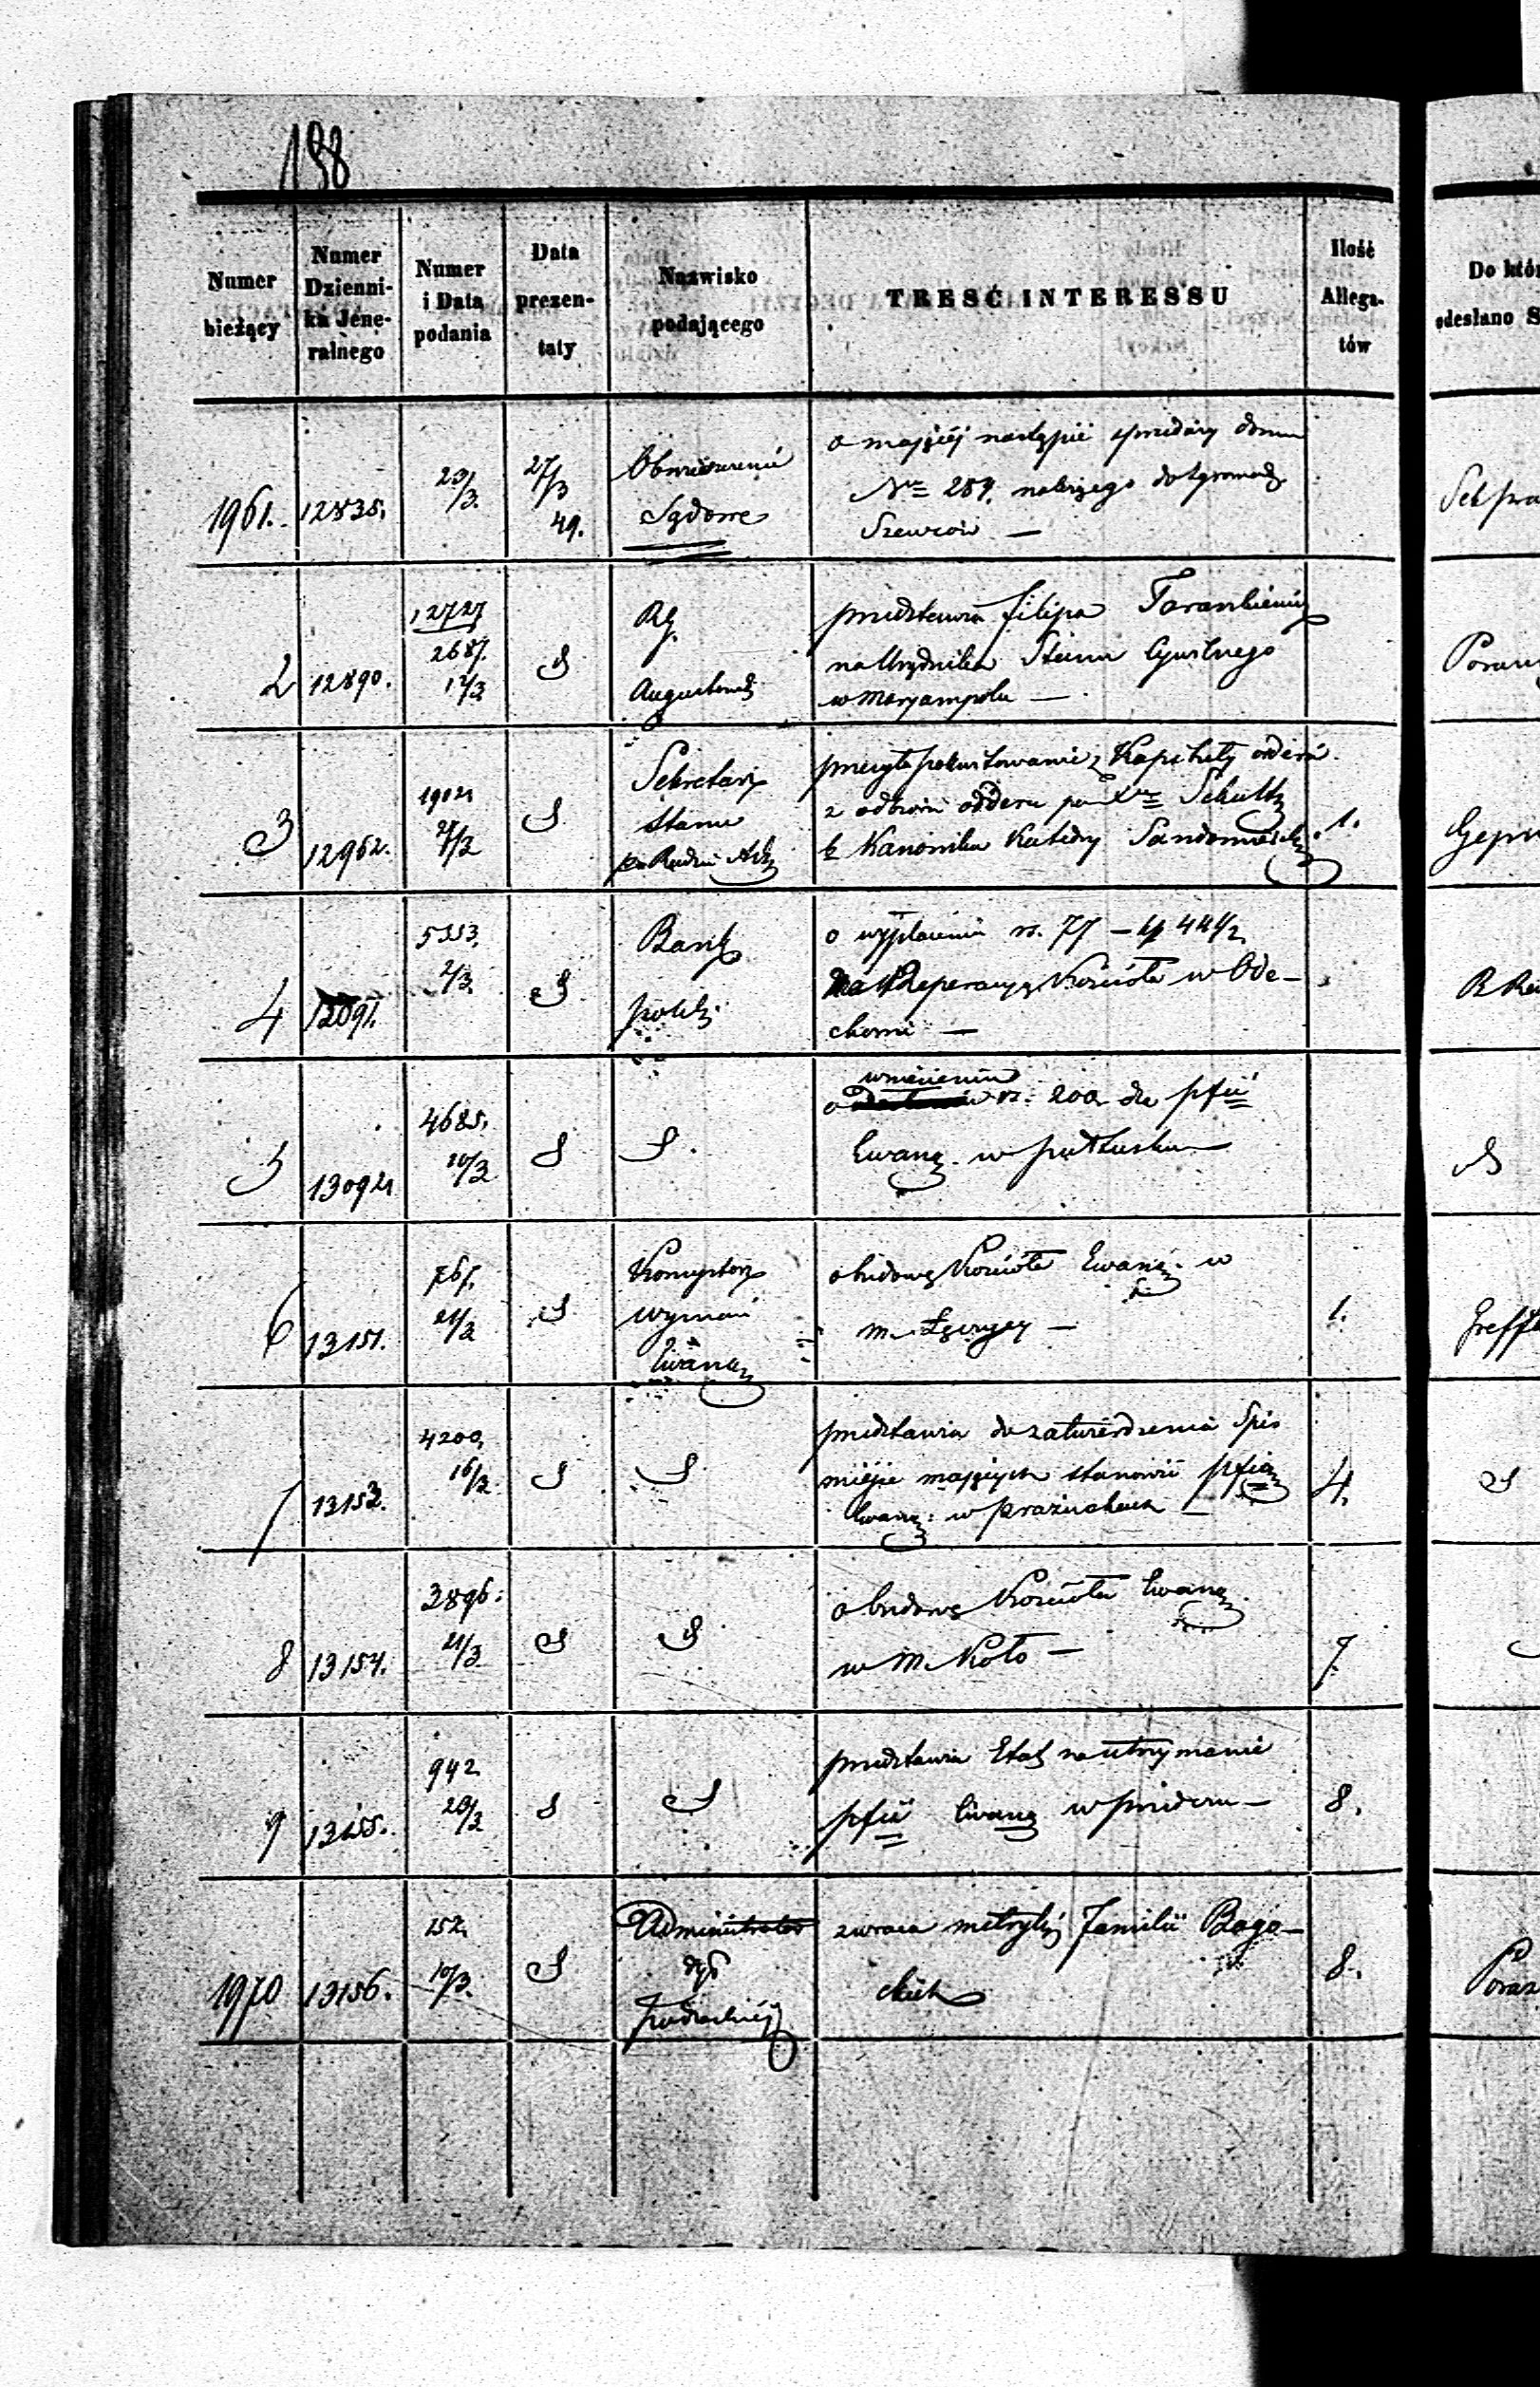 198
Numer bieżący
Numer Dzienni- ka Jene- ralnego
Numer i Data podania
Data prezen- taty
Nazwisko podającego
TREŚĆ INTERESSU
Ilość Allega- tów
Do któr
odesłano S
1961. 12835. 23/3. 27/3 49.
Obwieszczenie
Sądowe
o mającéj nastąpić sprzedaży domu
Nro 259. należącego do Zgromadz
Szewców —
2 12890. 12727
2687.
17/3 S
RG.
Augustowski
przedstawia filipa
na Urzędnika Stanu Cywilnego
w Maryampolu —
3 12962. 27/3 S
Sekretarz
Stanu
przesyła pokwitowanie z Kapituły orderu
z orderu Schultz
Kanonika Katedry
1.
4 5353. 2/3. S
Bank
polski
o wypłacenie rs. 77 – k 44 1/2
na Reperacyą Kościoła w Ode-
chowie —
5 4685. 10/3 S S.
wniesieniu
o rs. 200 dla pfii
Ewang. w pułtusku
6 13151. 767. 21/3 S
Konsystorz
wyznań
Ewang
o budowę Kościoła Ewang. w
m. Łęczycy —
1.
7 13153. 4200. 16/3 S S
przedstawia do zatwierdzenia Spis
miejsc mających stanowić pfią
Ewang: w prażuchach —
4.
S
8 13154. 3896. 21/3 S S
o budowę Kościoła Ewang.
w m. Koło —
7
9 13155. 942 20/3 S S
przedstawia Etat na utrzymanie
pfii Ewang
8.
1970 13156. 152. 10/3. S
Administrator
dyec
Podlaskiéj
zwraca metryki Familii Boga-
ckich
8.